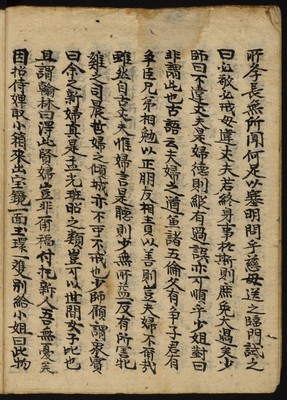 所孝長無所聞何足以塵明問乎慈母送之臨門誡之
曰必敬必戒毋違丈夫若終身事於斯則庶免大過矣少
師曰不違丈夫是婦德則縱有過誤亦可順乎少姐對曰
非謂此也古語云夫婦之道兼諸五倫父有爭子君有
爭臣兄弟相勉以正朋友相責以善則豈夫婦不爾哉
雖然自古丈夫惟婦言是聽則少無所益反有所害牝
雞之司晨哲婦之傾城亦不可不戒也少師顧謂衆賓
曰余之新婦真是孟光班昭之類豈可以世間女子比也
且謂翰林曰得此賢婦豈非爾福付托新人吾無憂矣
因招侍婢取小箱來出宝鏡一面玉環一雙別給小姐曰此物